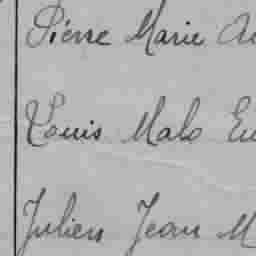 Pierre Marie
Louis Malo
Julien Jean